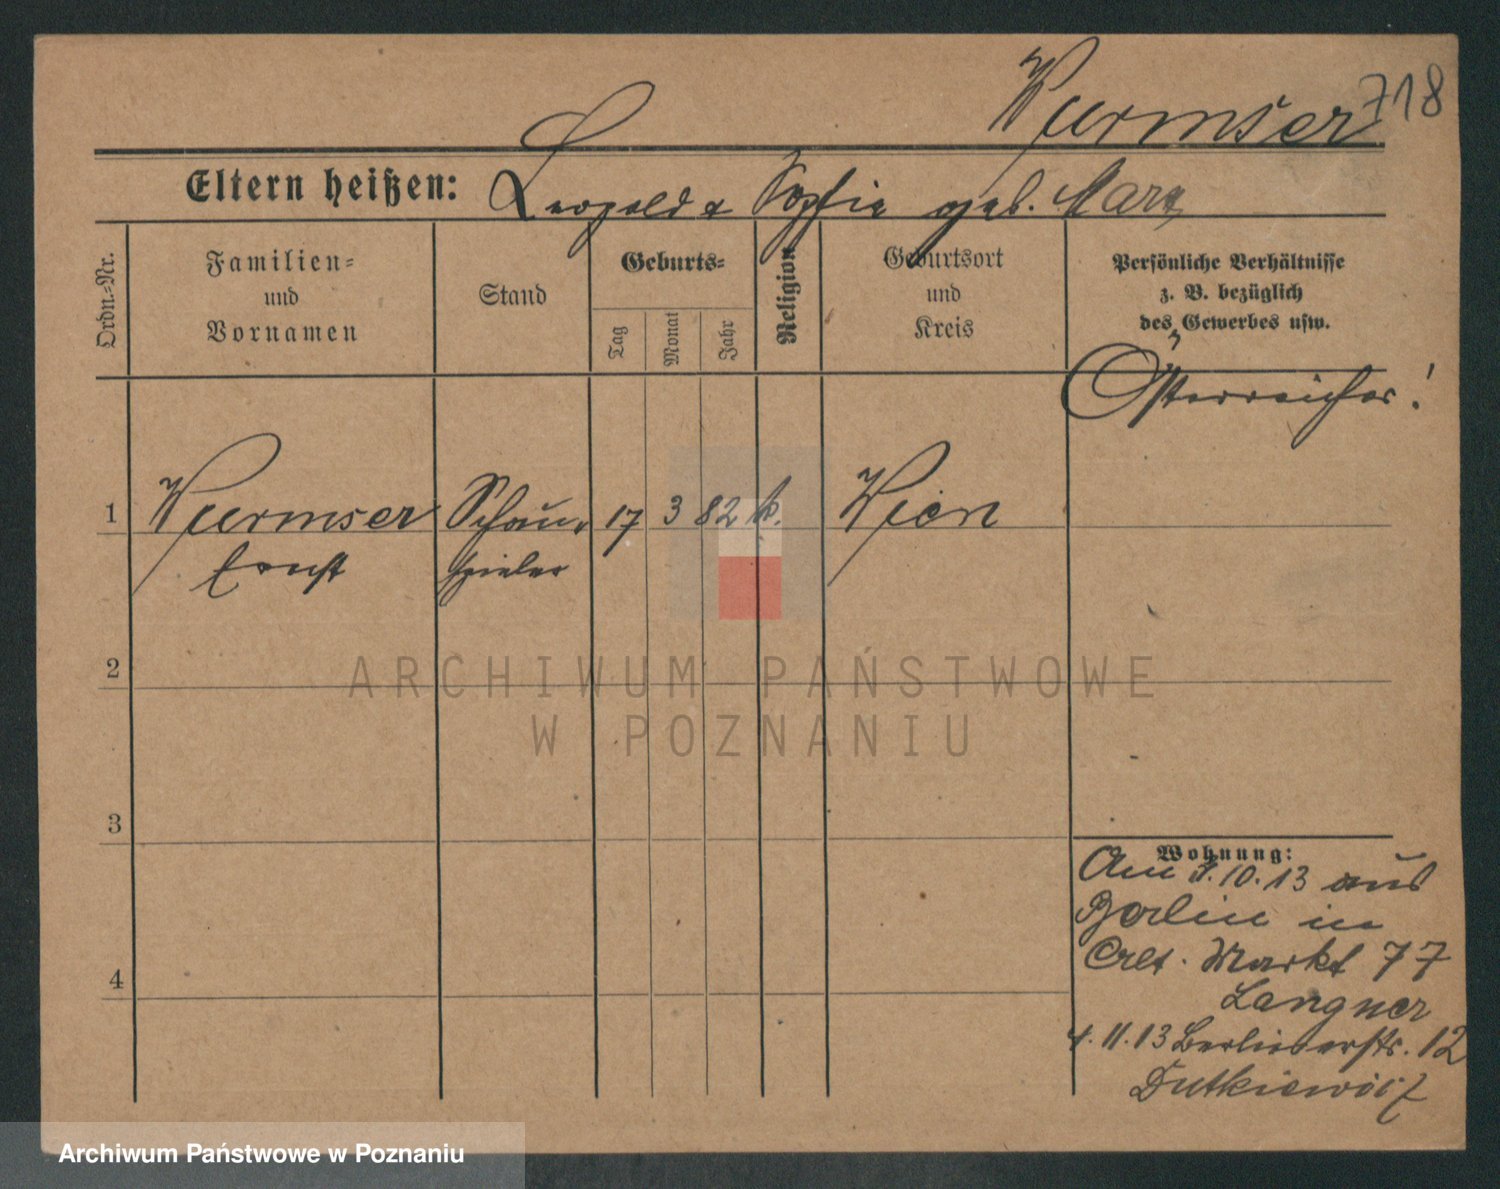 Wurmser 718
Eltern heißen: Leopold & Sophie geb. Marx
Ordn.=Nr.
Familien=
und
Vornamen
Stand
Geburts=
Tag
Monat
Jahr
Religion
Geburtsort
und
Kreis
Persönliche Verhältnisse
z. B. bezüglich
des Gewerbes usw.
Österreicher!
1 Wurmser Schau- 17 3 82 k. Wien
Ernst spieler
2
ARCHIWUM PAŃSTWOWE
W POZNANIU
3
Wohnung:
Am .10.13 aus
Berlin in
Alt. Markt 77
Langner
4
4.11.13 Berlinerstr. 12
Dutkiewicz
Archiwum Państwowe w Poznaniu